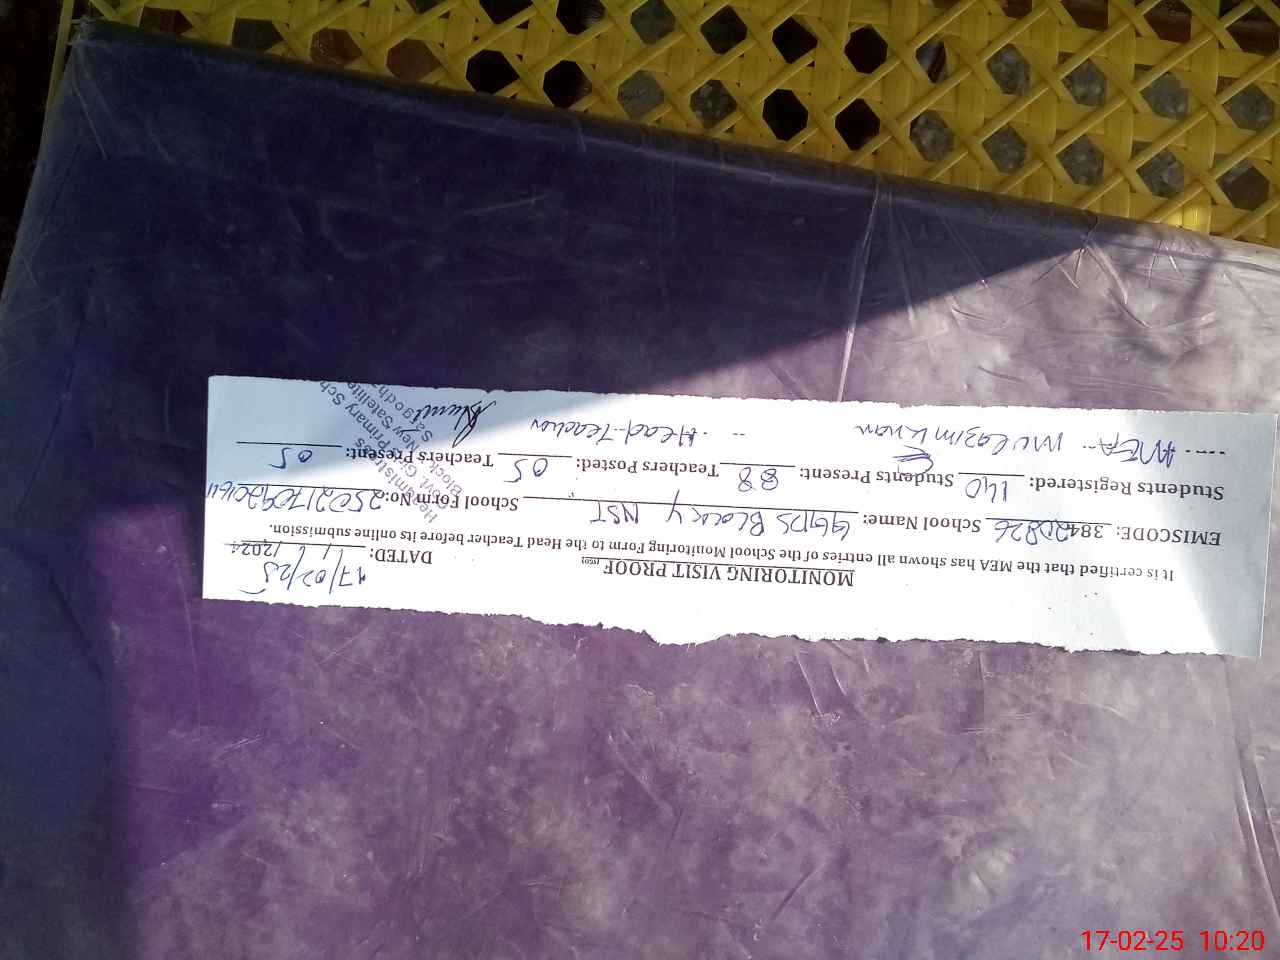 MONITORING VISIT PROOF
DATED: / / /2024
17/02/25
It is certified that the MEA has shown all entries of the School Monitoring Form to the Head Teacher before its online submission.
EMISCODE: 38420826 School Name: GGPS Block Y NST School Form No:
Students Registered: 140 Students Present: 88 Teachers Posted: 05 Teachers Present: 05
MEA -- Mulazim Khan -- Head-Teacher
Headmistress
Govt. Girls Primary Sch
Block New Satellite
Sargodha
17-02-25 10:20